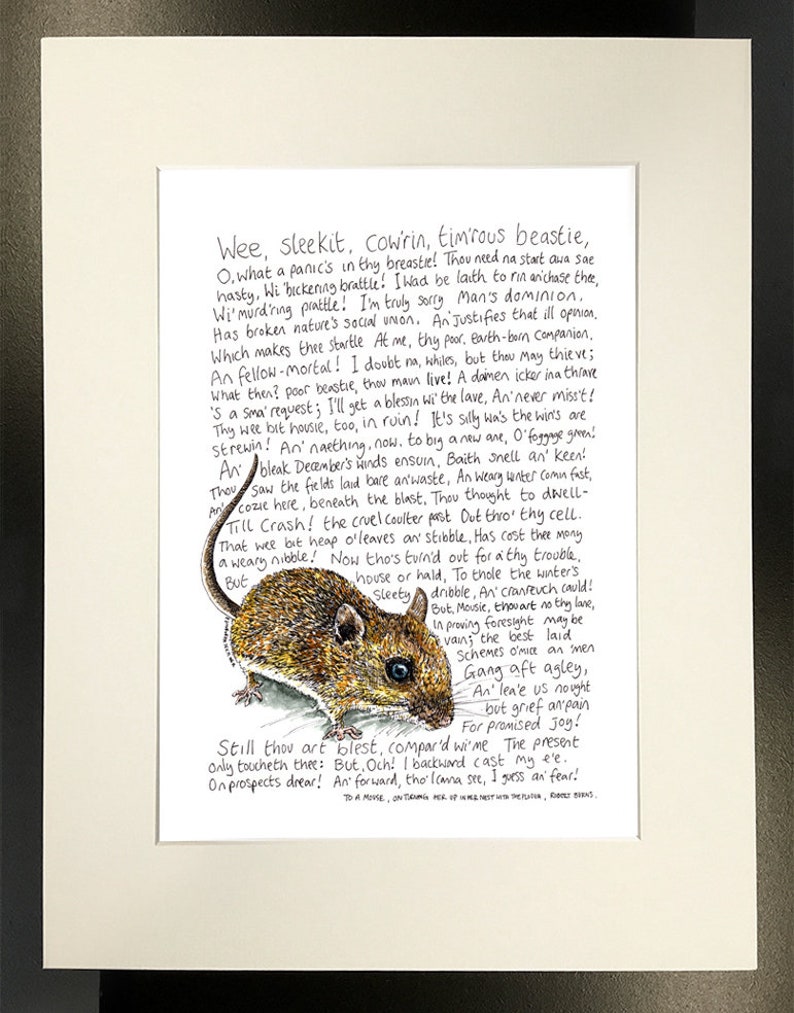 Wee, sleekit, cow'rin, tim'rous beastie,
O, what a panic's in thy breastie! Thou need na start awa sae
hasty, Wi' bickering brattle! I Wad be laith to rin an' chase thee,
Wi' murd'ring prattle! I'm truly sorry Man's dominion,
Has broken nature's social union, An' justifies that ill opinion,
Which makes thee startle At me, thy poor, earth-born companion,
An fellow-mortal! I doubt na, whiles, but thou may thieve;
What then? poor beastie, thou maun live! A daimen icker in a thrave
'S a sma' request; I'll get a blessin wi' the lave, An' never miss't!
Thy wee bit housie, too, in ruin! It's silly wa's the win's are
strewin! An' naething, now, to big a new ane, O' foggage green!
An' bleak December's winds ensuin, Baith snell an' keen!
Thou saw the fields laid bare an' waste, An weary winter comin fast,
An' cozie here, beneath the blast, Thou thought to dwell-
Till Crash! the cruel coulter past Out thro' thy cell.
That wee bit heap o' leaves an' stibble, Has cost thee mony
a weary nibble! Now tho's turn'd out for a' thy trouble,
But house or hald, To thole the winter's
sleety dribble, An' cranreuch cauld!
But, Mousie, thou art no thy lane,
In proving foresight may be
vain; the best laid
Schemes o' mice an 'men
Gang aft agley,
An' lea'e us nought
but grief an' pain
For promised joy!
Still thou art blest, compar'd wi' me The present
only toucheth thee: But, Och! I backward cast my e'e.
On prospects drear! An' forward, tho' I canna see, I guess an' fear!
TO A MOUSE, ON TURNING HER UP IN HER NEST WITH THE PLOUGH, ROBERT BURNS.